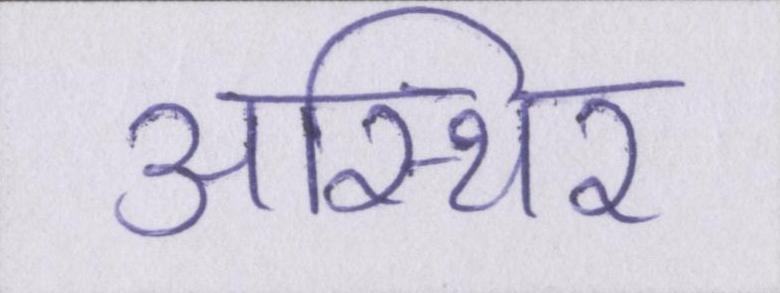 अस्थिर